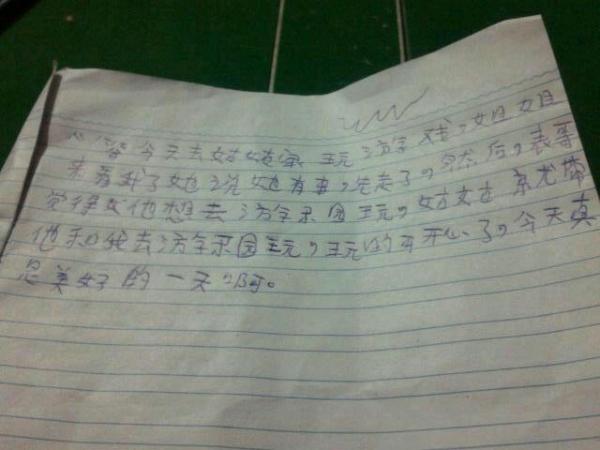 今天去姑姑家玩游戏,姐姐
来看我了她说她有事,先走了,然后,表哥
觉得 他想去游字乐园玩,姑姑就带
他和我去游字乐园玩,玩的可开心了,今天真
是美好的一天啊。